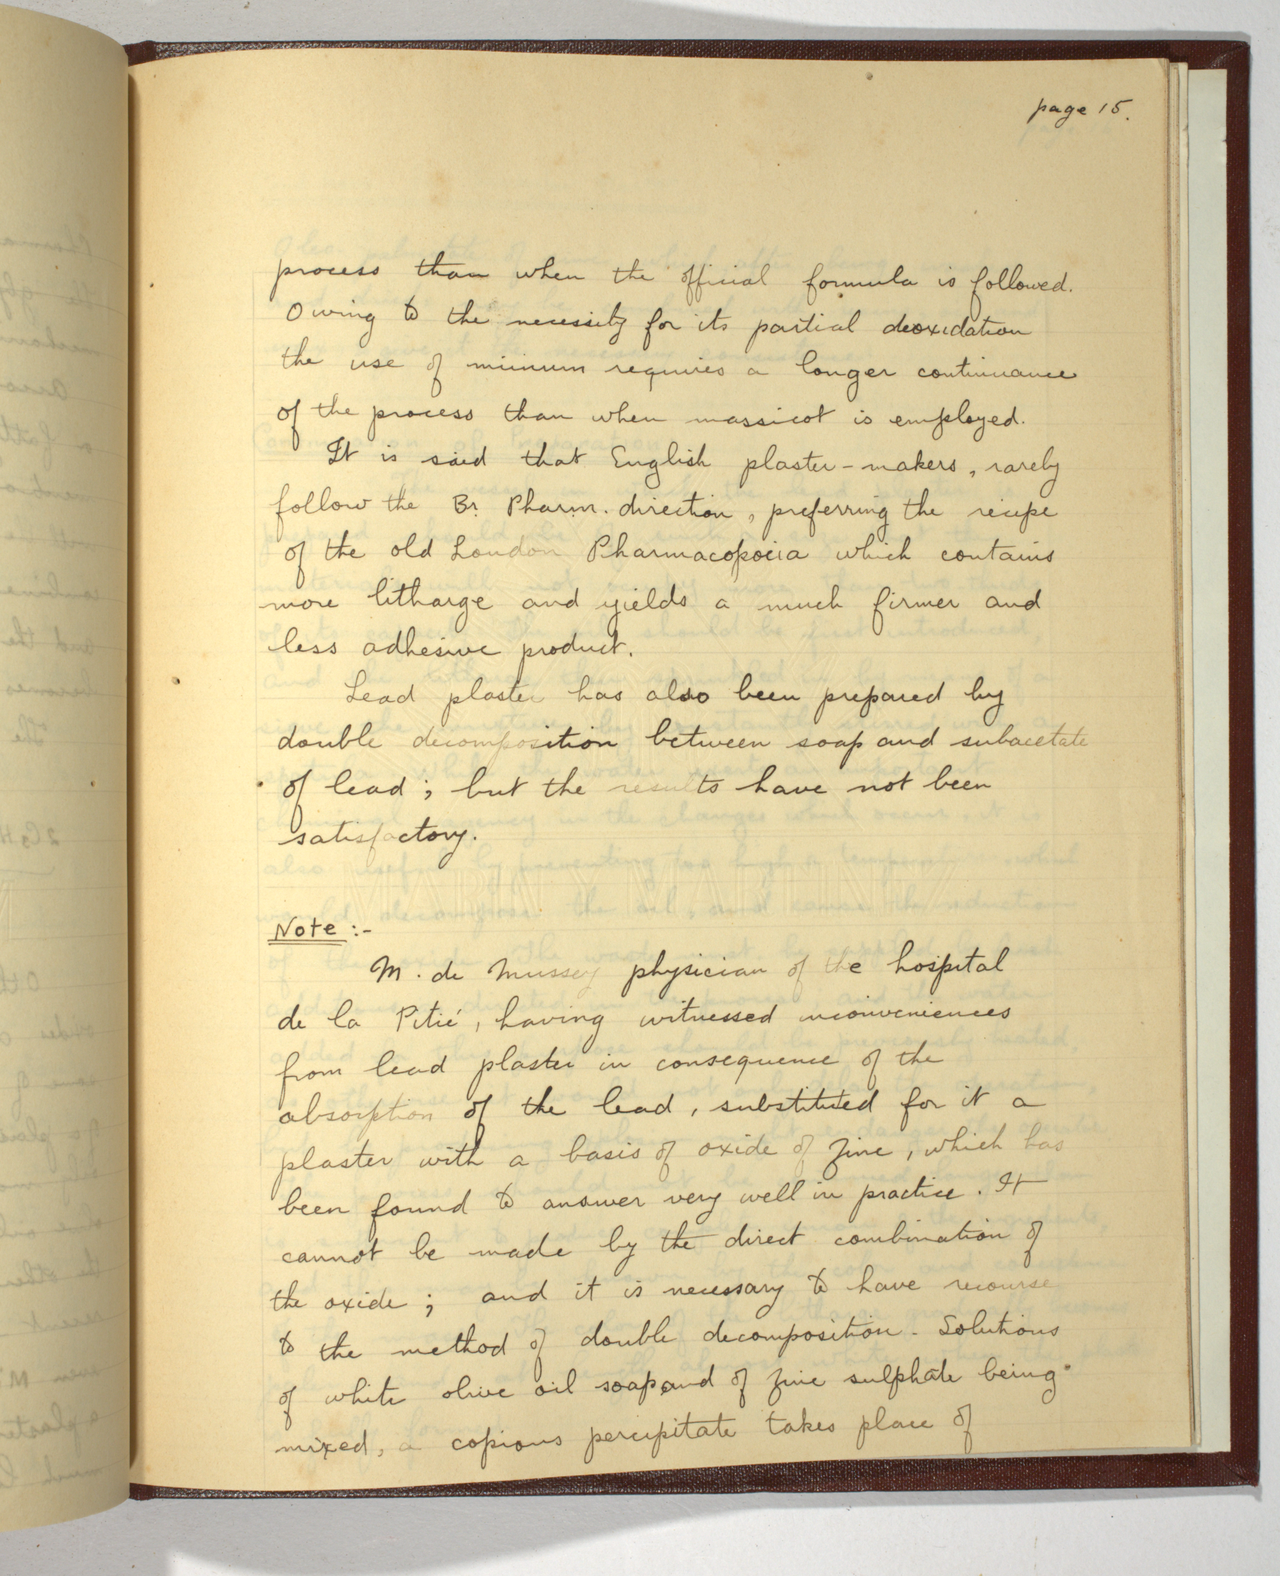 page 15.
process than when the official formula is followed.
Owing to the necessity for its partial deoxidation
the use of minium requires a longer continuance
of the process than when massicot is employed.
It is said that English plaster-makers, rarely
follow the Br. Pharm. direction, preferring the recipe
of the old London Pharmacopoeia which contains
more litharge and yields a much firmer and
less adhesive product.
Lead plaster has also been prepared by
double decomposition between soap and subacetate
of lead; but the results have not been
satisfactory.
Note :-
M. de Mussey physician of the hospital
de la Pitié, having witnessed inconveniences
from lead plaster in consequence of the
absorption of the lead, substituted for it a
plaster with a basis of oxide of Zinc, which has
been found to answer very well in practice. It
cannot be made by the direct combination of
the oxide; and it is necessary to have recourse
to the method of double decomposition. Solutions
of white olive oil soap and of Zinc sulphate being
mixed, a copious percipitate takes place of